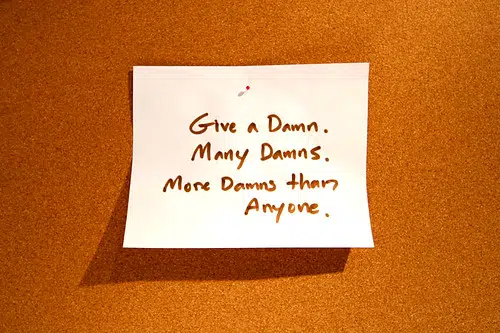 Give a Damn.
Many Damns.
More Damns than
Anyone.